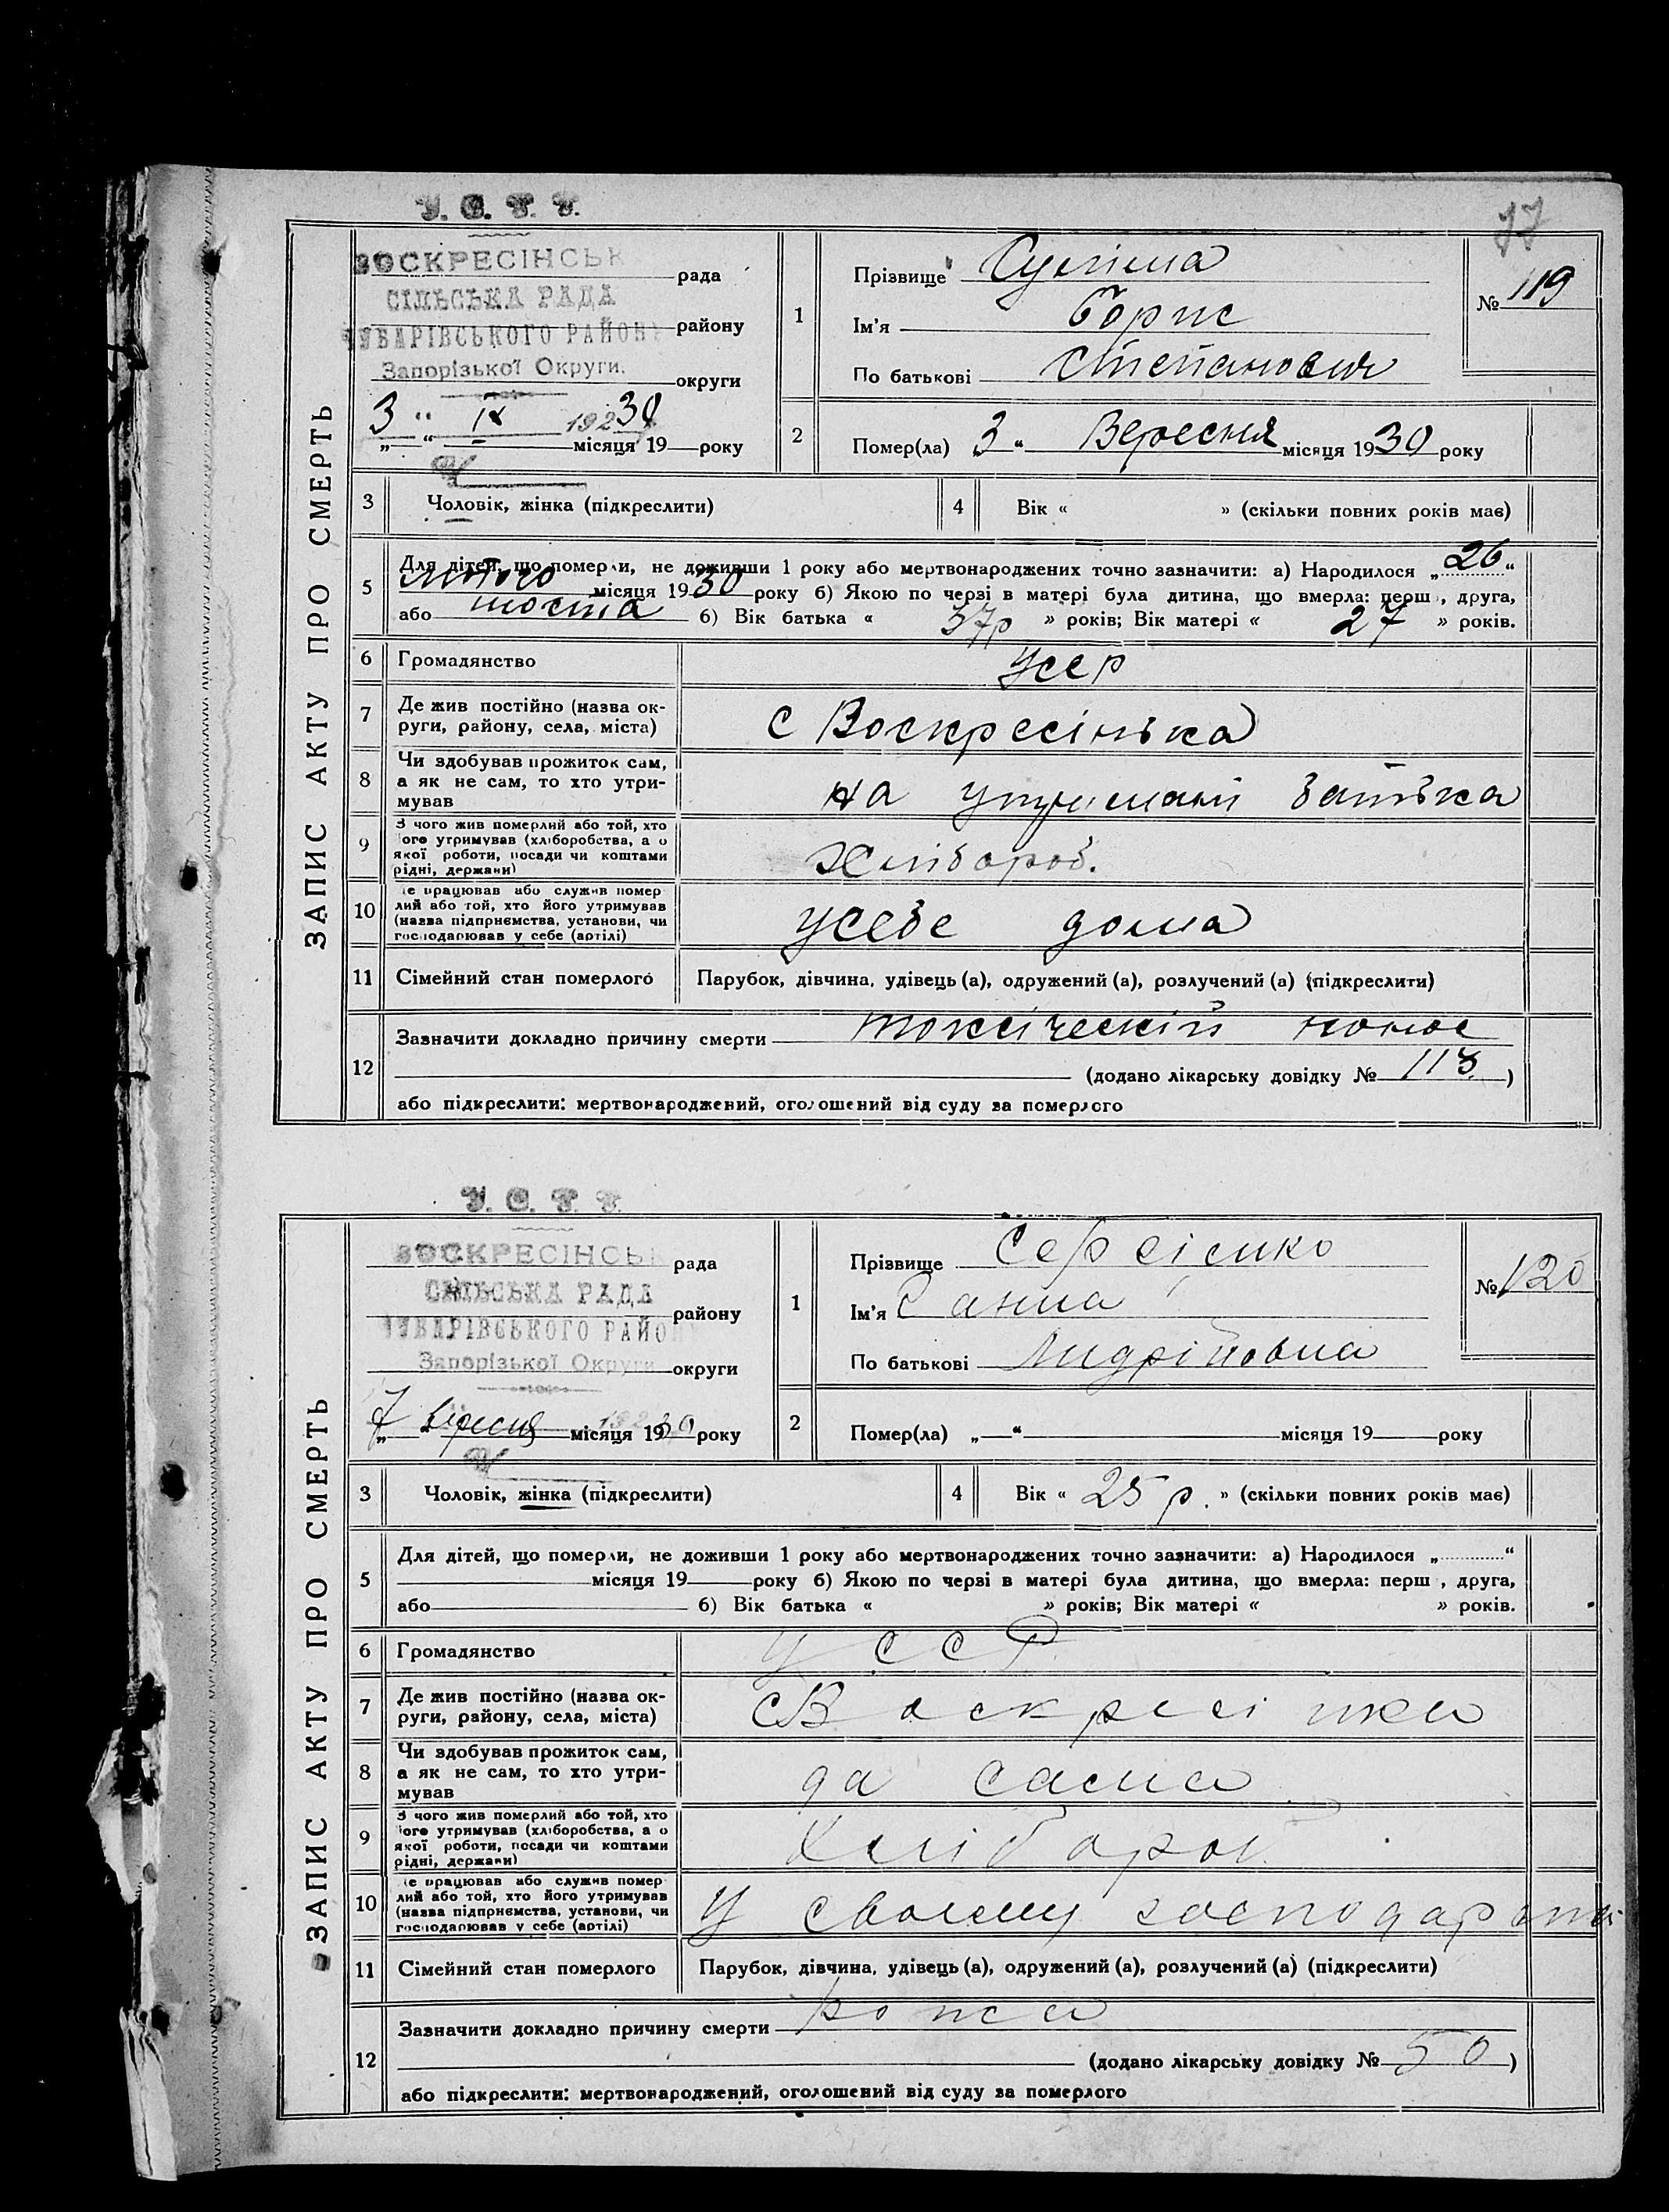 У. С. Р. Р.
77
ВОСКРЕСІНСЬК
рада
СІЛЬСЬКА РАДА
ЧУБАРІВСЬКОГО РАЙОНУ
району
Запорізької Округи.
округи
3 " IX 192 30
„ “ місяця 19 року
1
Прізвище Сулима
Ім'я Борис
По батькові Степанович
№ 119
2
Помер(ла) „3“ Вересня місяця 1930 року
ЗАПИС АКТУ ПРО СМЕРТЬ
3 Чоловік, жінка (підкреслити)
4 Вік « » (скільки повних років має)
5
Для дітей, що померли, не доживши 1 року або мертвонароджених точно зазначити: а) Народилося „26“
лютого місяця 1930 року б) Якою по черзі в матері була дитина, що вмерла: перш , друга,
або шоста б) Вік батька « 37р » років; Вік матері « 27 » років.
6 Громадянство УССР
7 Де жив постійно (назва ок-
руги, району, села, міста)
с Воскресінька
8 Чи здобував прожиток сам,
а як не сам, то хто утри-
мував
на утримані батька
9 З чого жив померлий або той, хто
його утримував (хліборобства, а о
якої роботи, посади чи коштами
рідні, держави)
Хлібороб.
10 Де працював або служив помер
лий або той, хто його утримував
(назва підприємства, установи, чи
господарював у себе (артілі)
усебе дома
11 Сімейний стан померлого Парубок, дівчина, удівець (а), одружений (а), розлучений (а) (підкреслити)
12 Зазначити докладно причину смерти токсіческій понос
(додано лікарську довідку № 118)
або підкреслити: мертвонароджений, оголошений від суду за померлого
У. С. Р. Р.
ВОСКРЕСІНСЬК
рада
СІЛЬСЬКА РАДА
району
ЧУБАРІВСЬКОГО РАЙОНУ
Запорізької Округи
округи
7 вересня місяця 1930 року
1
Прізвище
Ім'я Ганна
По батькові Андріївна
№ 120
2
Помер(ла) „ “ місяця 19 року
ЗАПИС АКТУ ПРО СМЕРТЬ
3 Чоловік, жінка (підкреслити)
4 Вік « 25 р. » (скільки повних років має)
5
Для дітей, що померли, не доживши 1 року або мертвонароджених точно зазначити: а) Народилося „ “
місяця 19 року б) Якою по черзі в матері була дитина, що вмерла: перш , друга,
або б) Вік батька « » років; Вік матері « » років.
6 Громадянство УССР
7 Де жив постійно (назва ок-
руги, району, села, міста)
с Воскресінка
8 Чи здобував прожиток сам,
а як не сам, то хто утри-
мував
да сама
9 З чого жив померлий або той, хто
його утримував (хліборобства, а о
якої роботи, посади чи коштами
рідні, держави)
Хлібороб.
10 Де працював або служив помер
лий або той, хто його утримував
(назва підприємства, установи, чи
господарював у себе (артілі)
У своєму господарстві
11 Сімейний стан померлого Парубок, дівчина, удівець (а), одружений (а), розлучений (а) (підкреслити)
12 Зазначити докладно причину смерти рожа
(додано лікарську довідку № 50)
або підкреслити: мертвонароджений, оголошений від суду за померлого